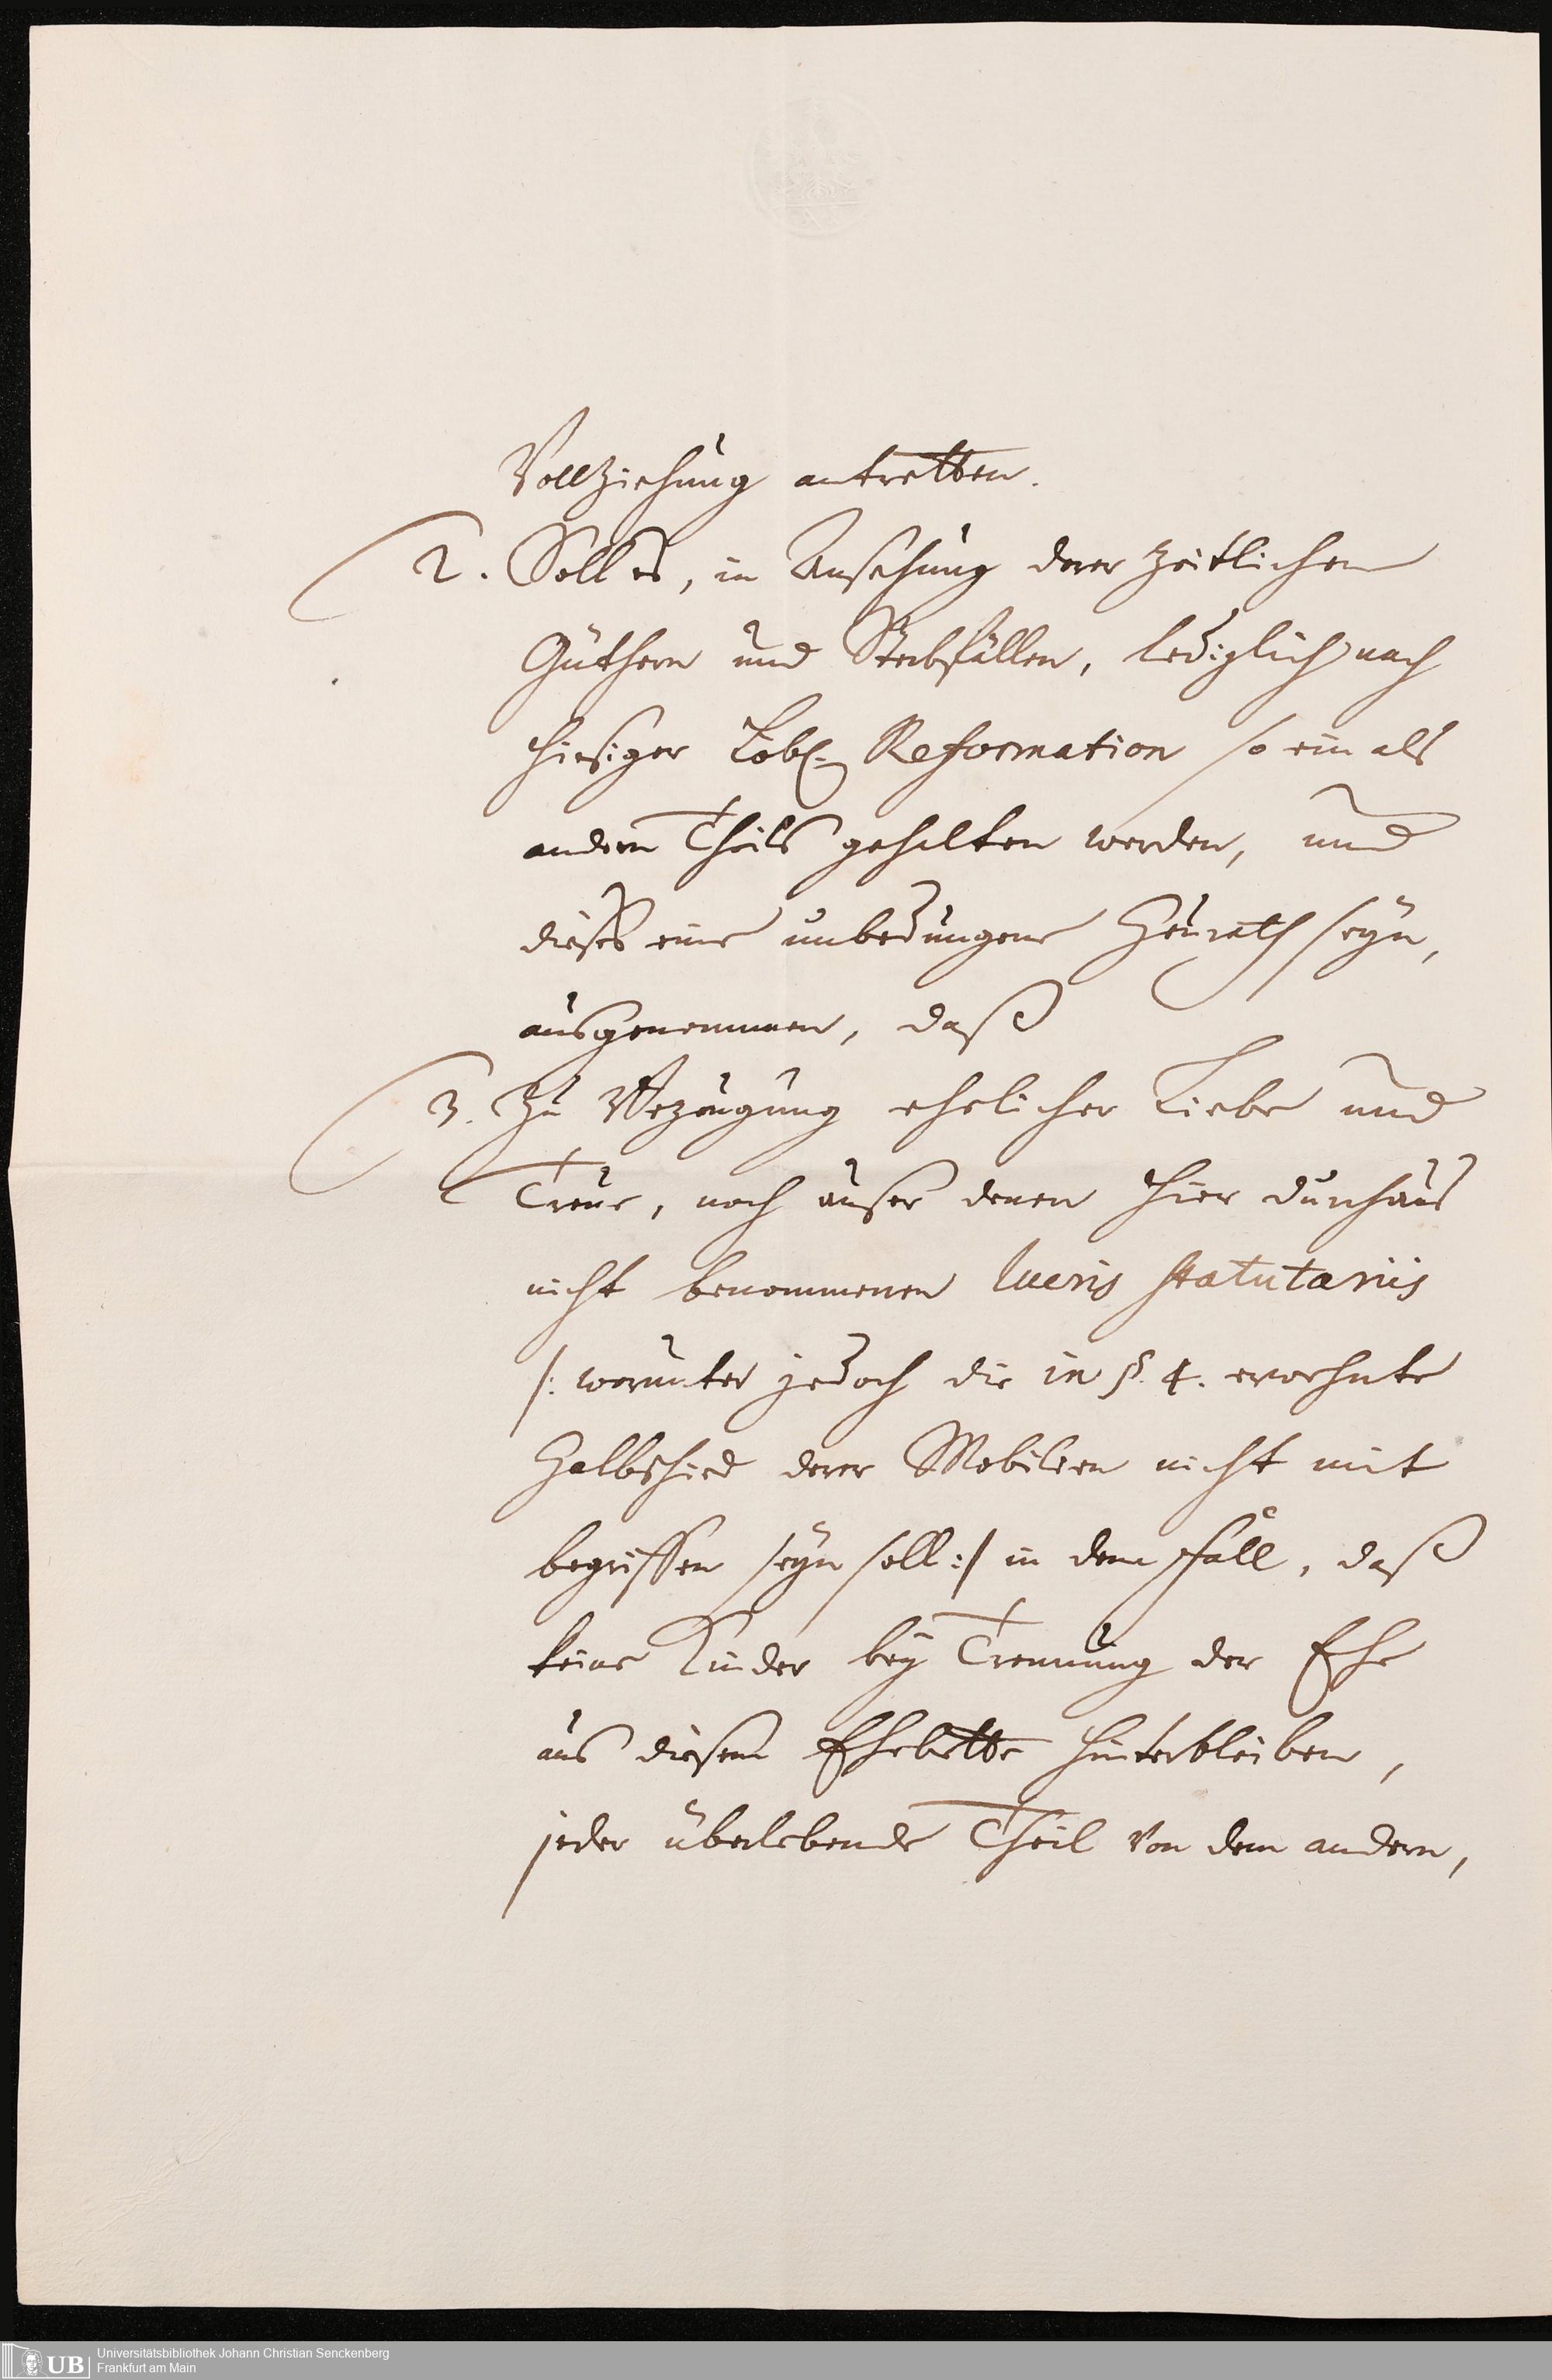 Vollziehung antretten.
2. Soll es, in Ansehung derer zeitlichen
Güthern und Sterbfällen, lediglich nach
hiesiger Lobl. Reformation so ein als
andern Theils gehalten werden, und
dieses eine unbedungene Heurath seyn,
ausgenommen, daß
3. Zu Bezeugung ehelicher Liebe und
Treue, noch auser denen hier durchaus
nicht benommenen lucris statutariis
/: worunter jedoch die in §. 4. erwehnte
Halbschied derer Mobilien nicht mit
begriffen seyn soll :/ in dem Fall, daß
keine Kinder bey Trennung der Ehe
aus diesem Ehebette hinterbleiben,
jeder überlebende Theil von dem andern,
UB Universitätsbibliothek Johann Christian Senckenberg
Frankfurt am Main